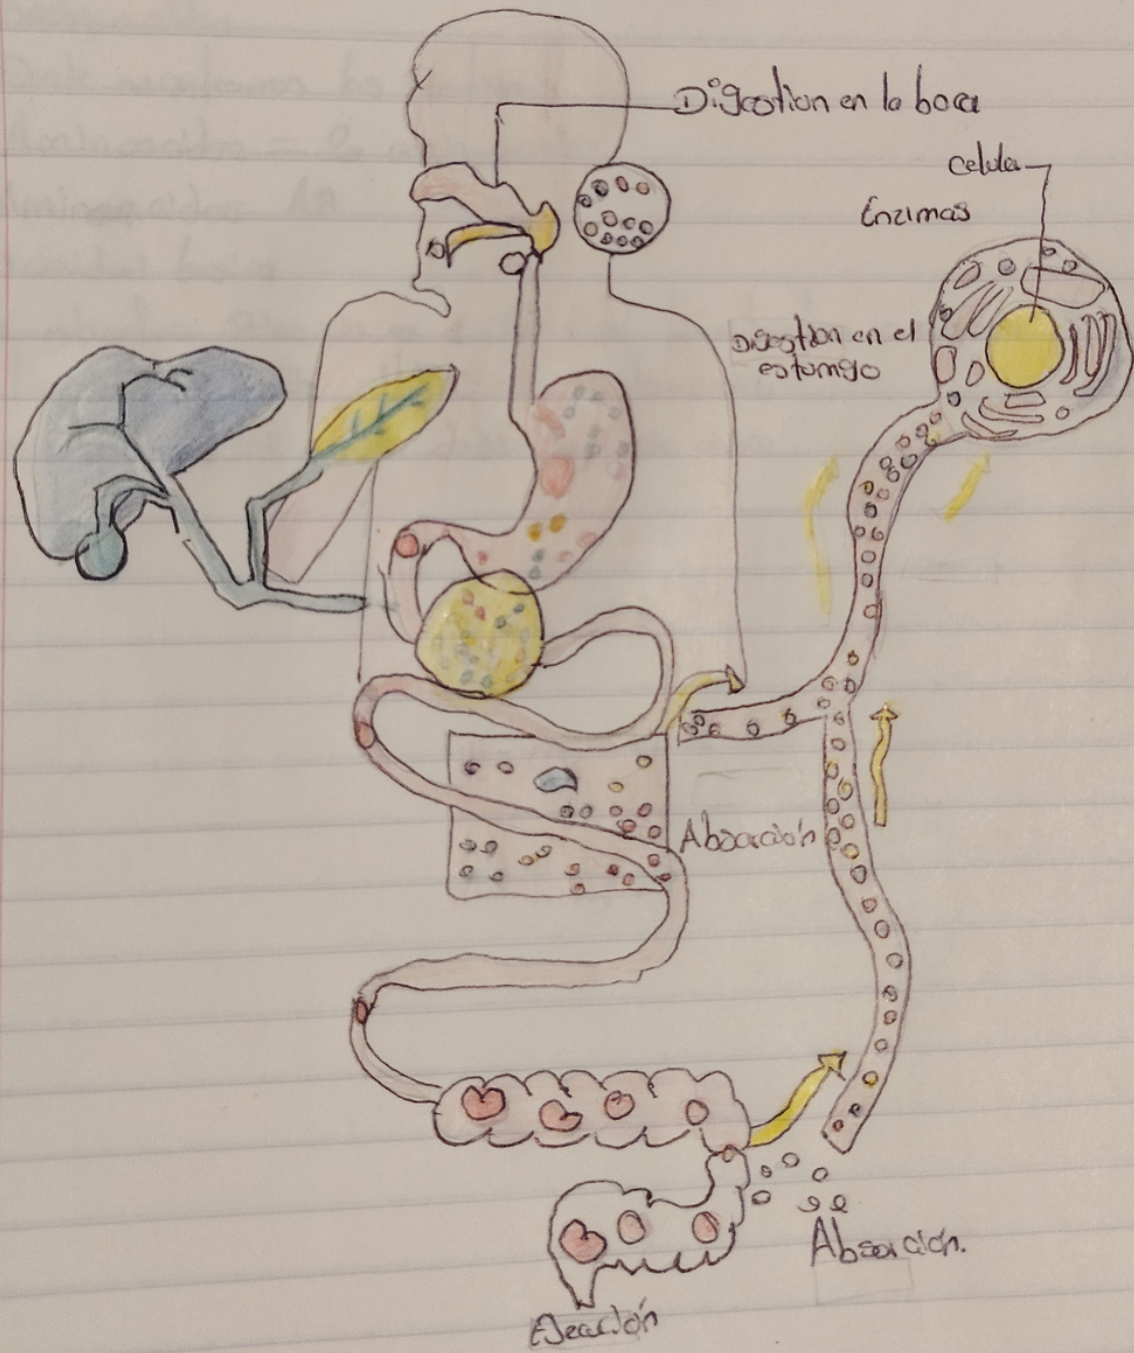 Digestion en la boca
celula
Enzimas
Digestion en el
estomgo
Absorción
Absorción.
Ejecución